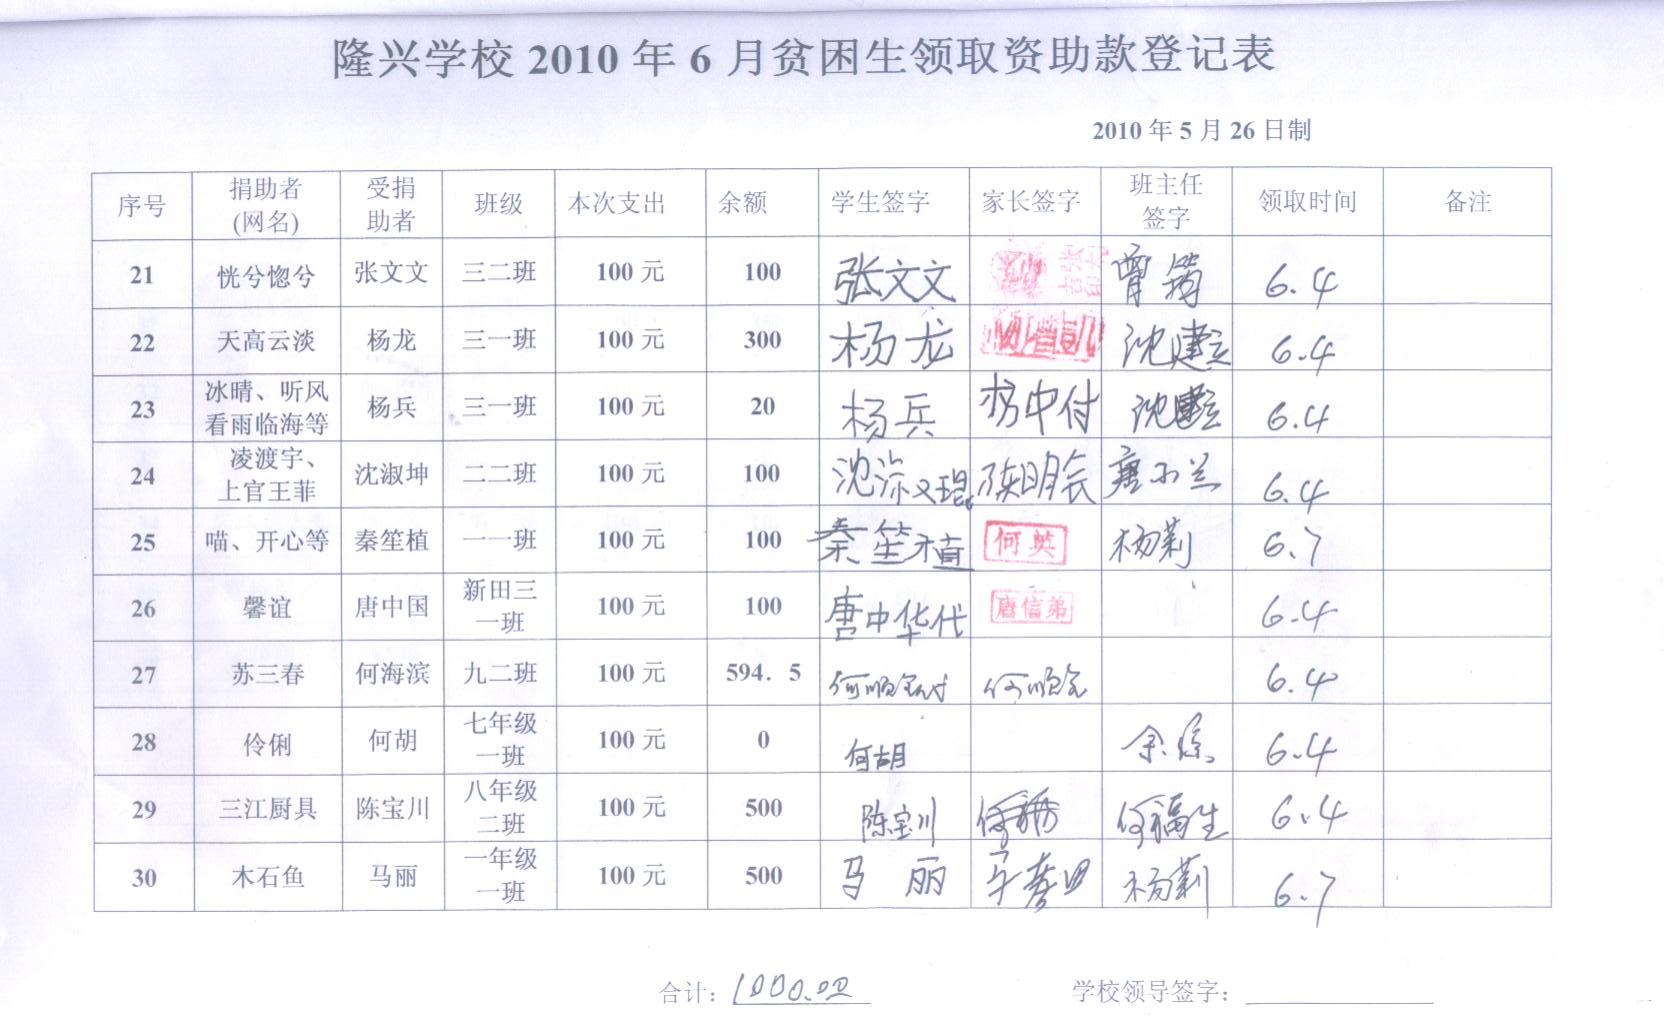 隆兴学校 2010 年 6 月贫困生领取资助款登记表
2010 年 5 月 26 日制
序号 捐助者(网名) 受捐助者 班级 本次支出 余额 学生签字 家长签字 班主任签字 领取时间 备注
21 恍兮惚兮 张文文 三二班 100 元 100 张文文 6.4
22 天高云淡 杨龙 三一班 100 元 300 杨龙 沈建 6.4
23 冰晴、听风看雨临海等 杨兵 三一班 100 元 20 杨兵 杨中付 沈建 6.4
24 凌渡宇、上官王菲 沈淑坤 二二班 100 元 100 沈淑琨 陈明会 唐小兰 6.4
25 喵、开心等 秦笙植 一一班 100 元 100 秦笙植 何英 杨莉 6.7
26 馨谊 唐中国 新田三一班 100 元 100 唐中华代 唐信弟 6.4
27 苏三春 何海滨 九二班 100 元 594. 5 6.4
28 伶俐 何胡 七年级一班 100 元 0 何胡 6.4
29 三江厨具 陈宝川 八年级二班 100 元 500 陈宝川 何福生 6.4
30 木石鱼 马丽 一年级一班 100 元 500 马丽 杨莉 6.7
合计：1000.00 学校领导签字：